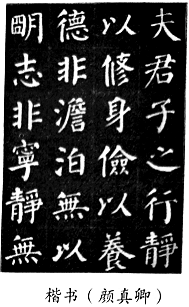 夫君子之行靜
以修身儉以養
德非澹泊無以
明志非寧靜無
楷书（颜真卿）